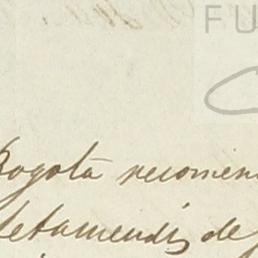 FU
Bogotá recomien
letamendi de